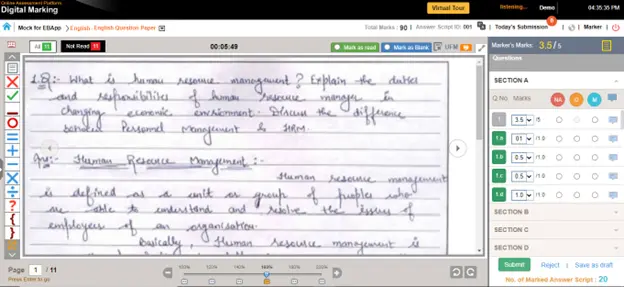 Online Assessment Platform
Digital Marking
Virtual Tour
listening...
Demo
04:35:35 PM
Mock for EBApp > English - English Question Paper
Total Marks : 90 | Answer Script ID: 001
Today's Submission
8
Marker
All 11
Not Read 11
00:05:49
Mark as read
Mark as Blank
UFM
Marker's Marks: 3.5 / 5
Questions
SECTION A
Q.No Marks NA O M
1 3.5 /5
1.a 01 /1.0
1.b 0.5 /1.0
1.c 0.5 /1.0
1.d 1.0 /1.0
SECTION B
SECTION C
SECTION D
Submit Reject | Save as draft
No. of Marked Answer Script : 20
1.Q:- What is human resource management? Explain the duties
and responsibilities of human resource manager in
changing economic enviornment. Discuss the difference
between Personal Management & HRM.
Ans:- Human Resource Management :-
Human resource management
is defined as a unit or group of peoples who
are able to understand and resolve the issues of
employees of an organisation.
Basically, Human resource management is
Page 1 / 11
Press Enter to go
100% 120% 140% 160% 180% 200%